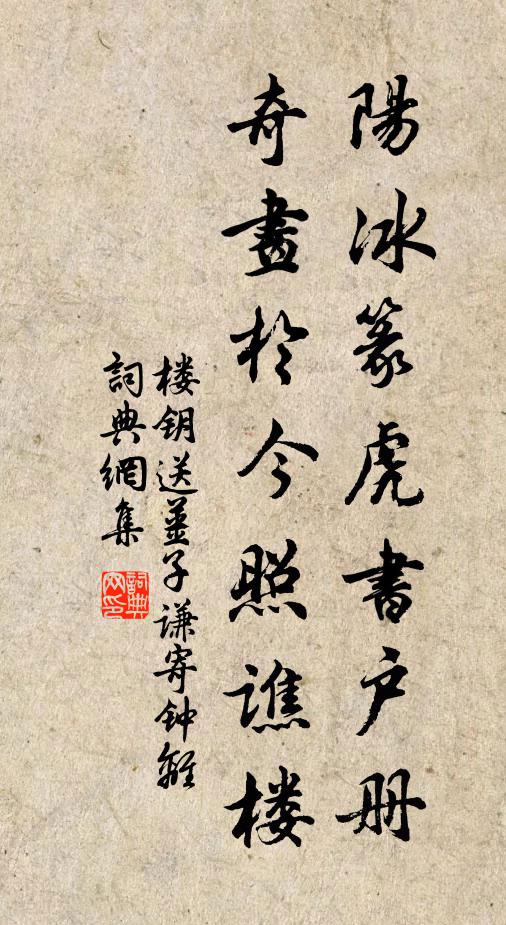 陽冰篆虎書户册
奇畫於今照譙楼
楼钥送薑子谦寄钟離
詞典網集
詞典网印